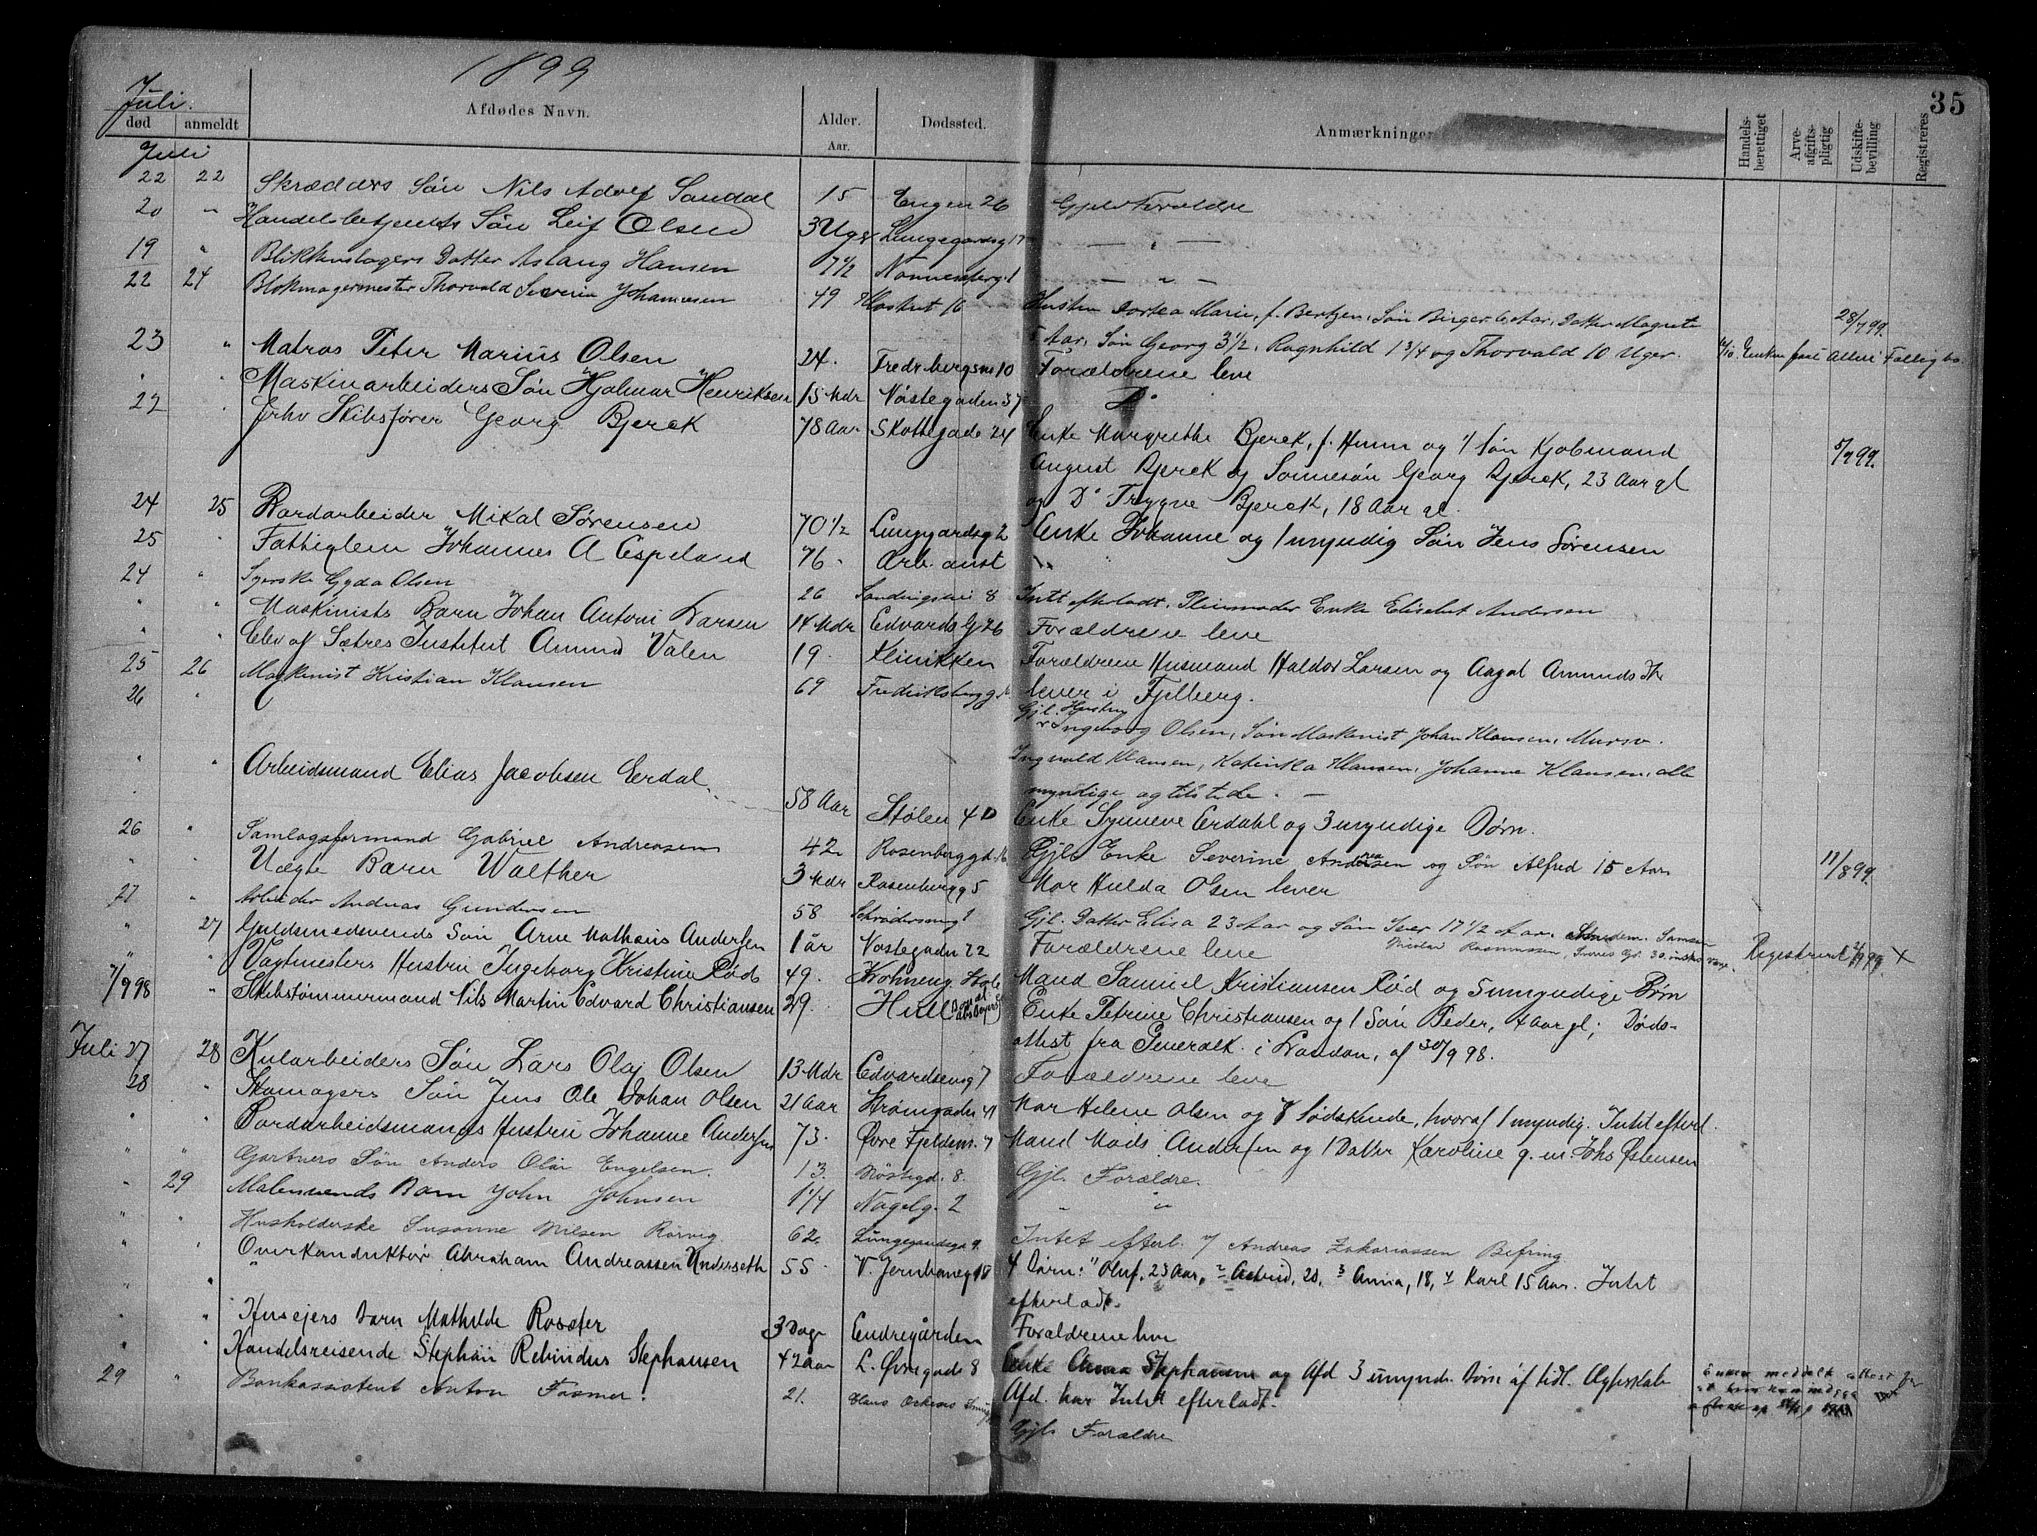 1899
35
Juli.
død anmeldt Afdødes Navn. Alder. Aar. Dødssted. Anmærkninger Handels-berettiget Arve-afgifts-pligtig Udskifte-bevilling Registreres
Juli
22 22 Skrædders Søn Nils Adolf Sandal 15 Engen 26 Gjenl. Foreldre
20 " Handelsbetjents Søn Leif Olsen 3 Uger Lungegaardsg 17 — " —
19 " Blikkenslagers Datter Aslaug Hansen 7 1/2 Nonneberg 1 — " —
22 24 Blokmagermester Thorvald Severin Johannesen 49 Klostret 16 Hustru Dortea Marie, f. Bertzen, Søn Birger 6 Aar, Datter Magnete 28/7 99.
5 Aar, Søn Georg 3 1/2, Ragnhild 1 3/4 og Thorvald 10 Uger. Enken
23 " Matros Peter Marius Olsen 24. Fredr.bergsns 10 Forældrene leve
" " Maskinarbeiders Søn Hjalmar Henriksen 15 Mdr Nøstegaden 37 Do
22 " Frhv Skibsfører Georg Bjerck 78 Aar Skottegade 24 Enke Margrethe Bjerck, f. Humn og 1 Søn Kjøbmand 5/9 99.
August Bjerck og Sønnesøn Georg Bjerck, 23 Aar gl
og Do Trygve Bjerck, 18 Aar gl.
24 25 Bordarbeider Mikal Sørensen 70 1/2 Lungegaardsg 2 Enke Johanne og 1 myndig Søn Jens Sørensen
25 " Fattiglem Johannes A Espeland 76 Arb. anst "
24 " Syerske Gyda Olsen 26 Sandvigsvei 8 Intet efterladt. Pleiemoder Enke Elisabet Andersen
" " Maskinists Barn Johan Antoni Larsen 14 Mdr Edvards G 26 Forældrene leve
" " Elev af Sætres Institut Amund Valen 19. Klinikken Forældrene Husmand Haldor Larsen og Aagot Amunds Dtr
lever i Fjelberg.
25 26 Maskinist Kristian Klausen 69 Fredriksbergg Gjl. Hustru
26 " Ingeborg Olsen, Søn Maskinist Johan Klausen, Mursv.
Ingvald Klausen, Katinka Klausen, Johanne Klausen, alle
myndige og tilstede. —
" " Arbeidsmand Elias Jacobsen Erdal 58 Aar Stølen 4 D Enke Synneve Erdahl og 3 myndige Børn.
26 " Samlagsformand Gabriel Andreasen 42 Rosenberggd. Gjl. Enke Severine Andreasen og Søn Alfred 15 Aar 11/8 99.
" " Uægte Barn Walther 3 Mdr Rosenbergg 5 Mor Hulda Olsen lever
27 " Arbeider Andreas Gundersen 58 Gjl. Datter Elisa 23 Aar og Søn Iver 17 1/2 Aar.
" 27 Guldsmedsvends Søn Arne Mathias Andersen 1 år Nøstegaden 22 Forældrene leve Nicolai Rasmussen Registreret
" " Vagtmesters Hustru Ingeborg Kristine Rød 49. Kroneng Hole Mand Samuel Kristiansen Rød og 5 umyndige Børn
7/9 98 " Skibstømmermand Nils Martin Edvard Christiansen 29 Hull Enke Petrine Christiansen og 1 Søn Peder, 4 aar gl; Døds-
attest fra Generalk. i London, af 30/9 98.
Juli 27 28 Kularbeiders Søn Lars Olaj Olsen 13 Mdr Edvardsensg 7 Forældrene leve
28 " Skomagers Søn Jens Ole Johan Olsen 21 Aar Strømgaden 41 Mor Helene Olsen og 8 Sødskende, hvoraf 1 myndig. Intet efterl.
" " Bordarbeidsmands Hustru Johanne Andersen 73. Øvre Fjeldsm. 7 Mand Mads Andersen og 1 Datter Karoline g. m. Johs Østensen
" " Gartners Søn Anders Olai Engelsen. 13. Nøstegd. 8. Gjl. Forældre.
" 29 Malersvends Barn John Johnsen 1 1/4 Nagelg. 2 " "
" " Husholderske Susanne Nilsen Rørvig 62 Lungegaardsga 9. Intet efterl. / Andreas Zakariassen Befring
" " Overkonduktør Abraham Andreassen Underseth 55 V. Jernbaneg 18 4 Børn: 1 Oluf, 23 Aar, 2 Astrid, 20, 3 Anna, 18, 4 Karl 15 Aar. Intet
efterladt.
" " Huseiers Barn Mathilde Rosefer 3 Dage Endregården Forældrene leve
" " Handelsreisende Stephan Rehinder Stephansen 42 aar L. Øvregade 8 Enke Anna Stephansen og Afd 3 umynd. Børn af tidl. Ægteskab
Afd. har Intet efterladt. Enken meddelt attest
29 " Bankassistent Anton Fasmer. 21. Gjl. Forældre